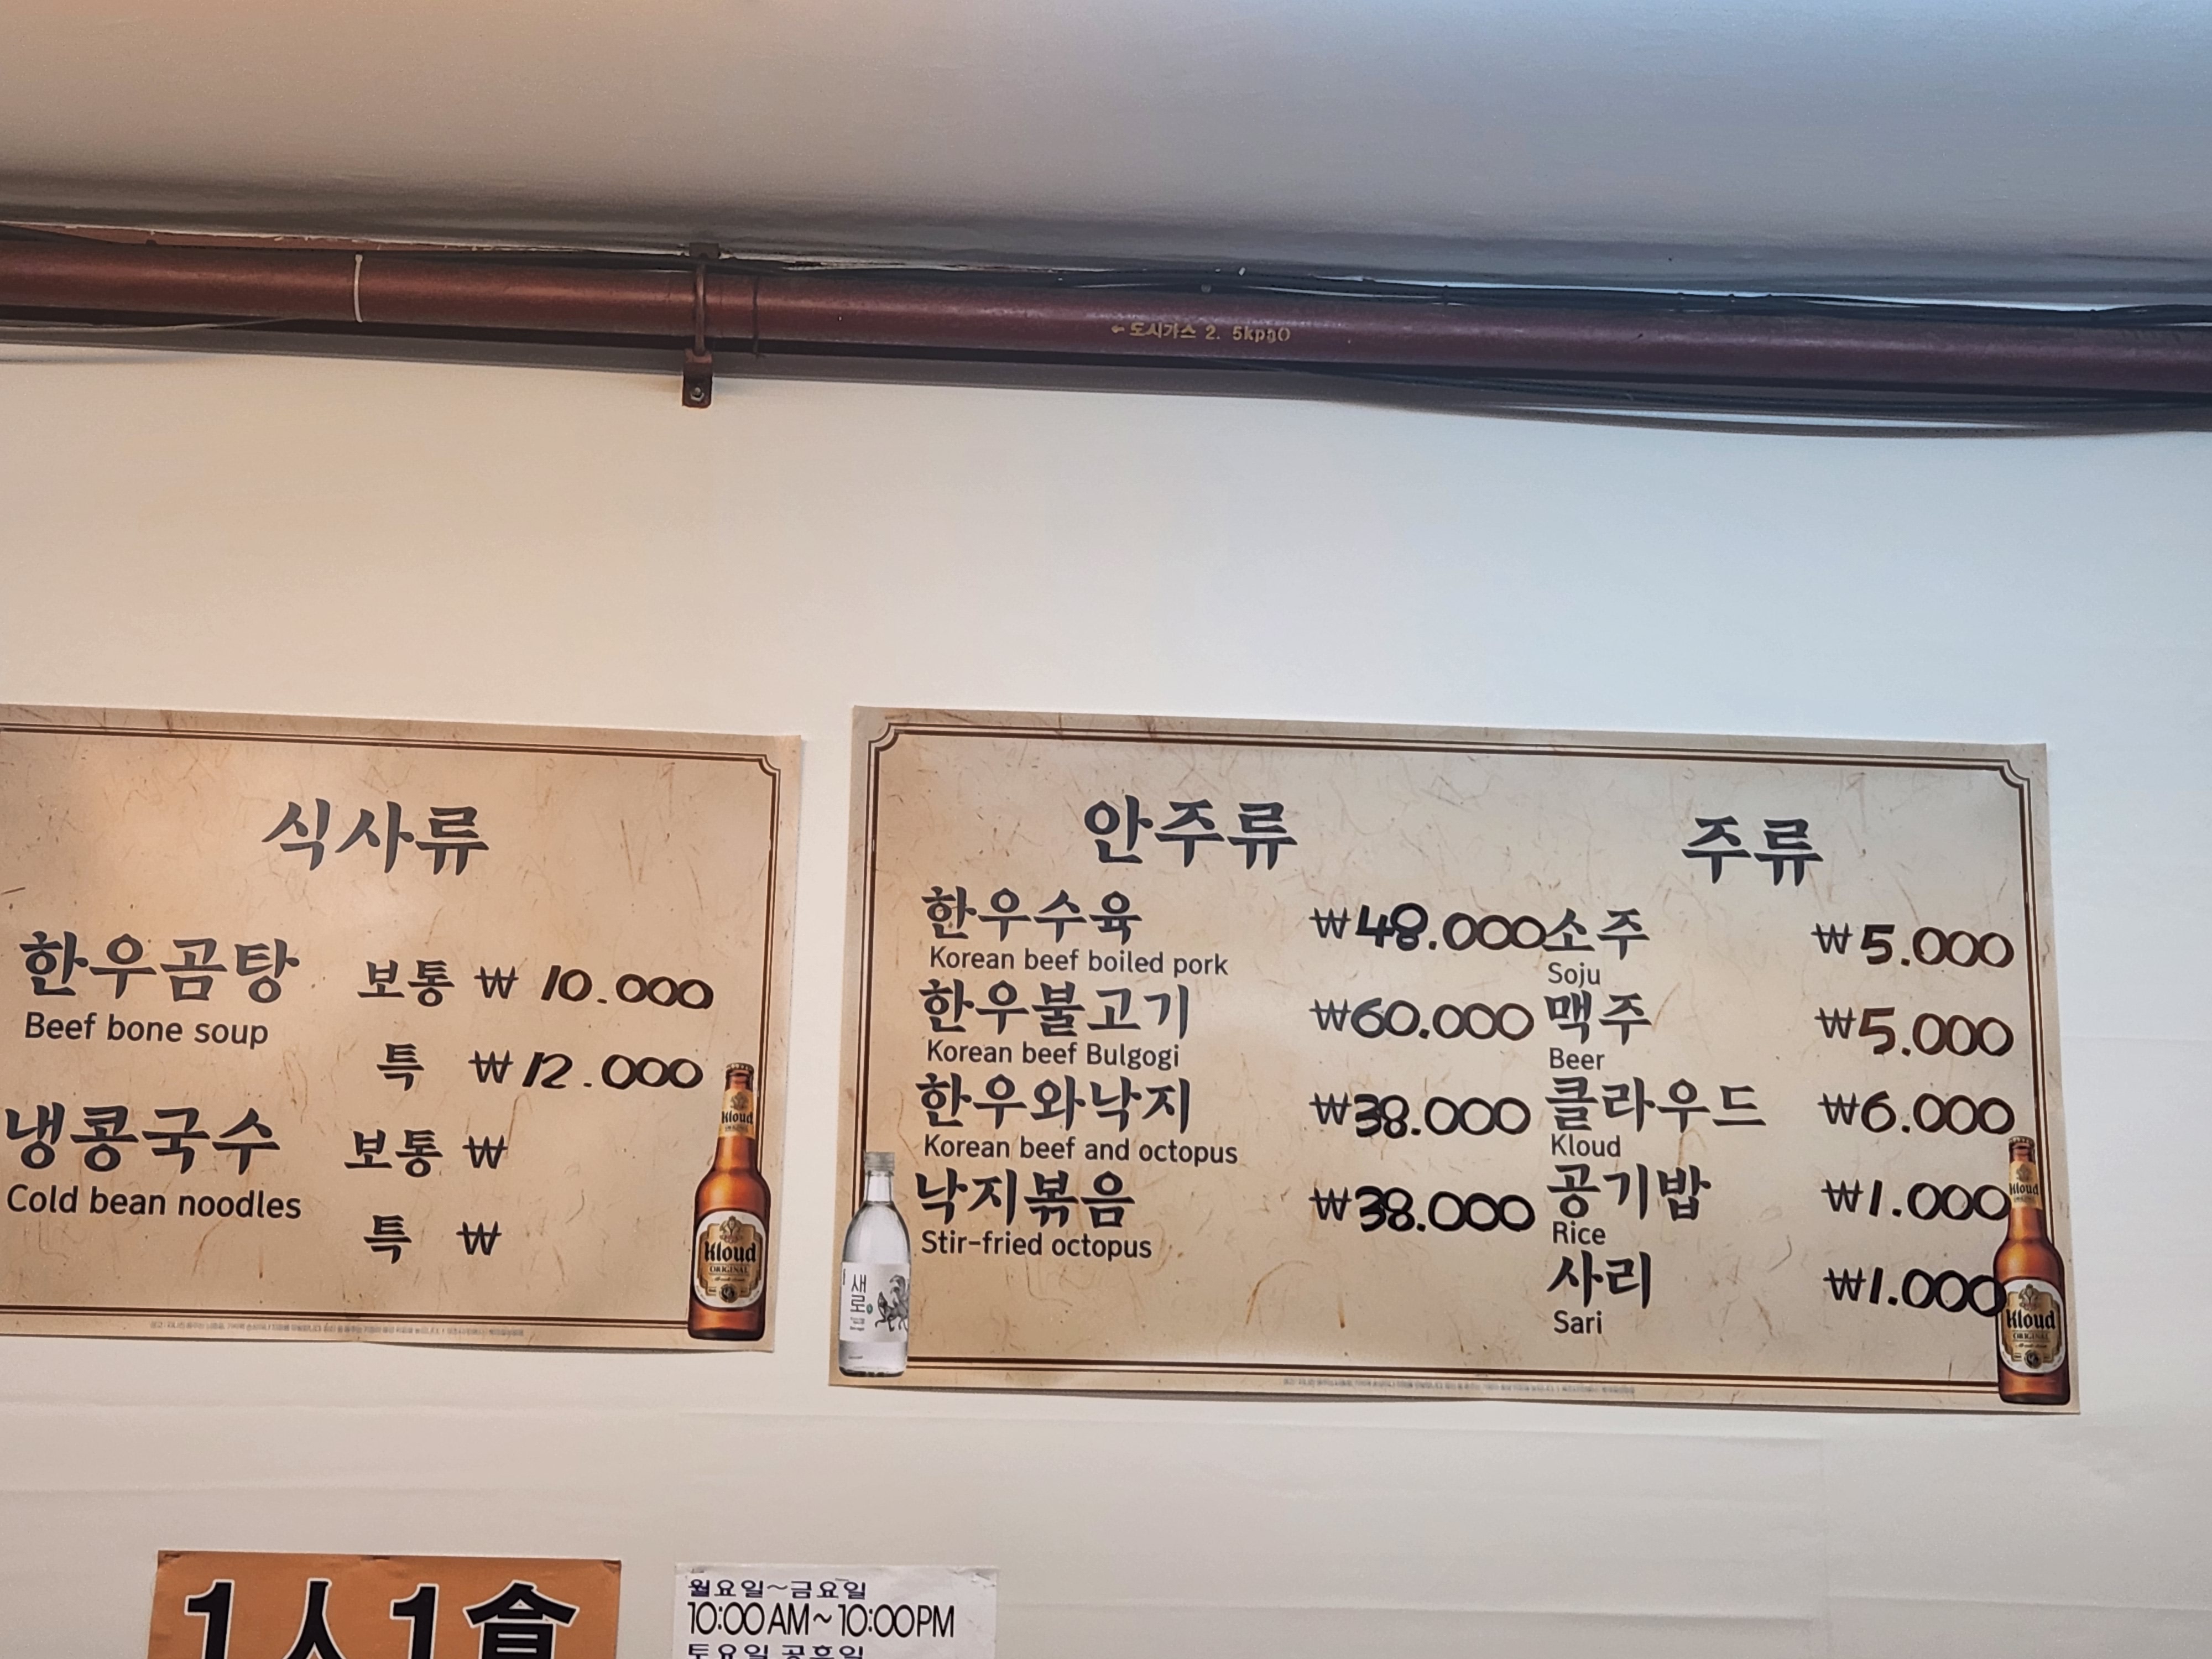 ←도시가스 2. 5kpa
식사류
한우곰탕 보통 ₩ 10.000
Beef bone soup
특 ₩12.000
냉콩국수 보통 ₩
Cold bean noodles
특 ₩
Kloud
Kloud
ORIGINAL
안주류
한우수육 ₩48.000
Korean beef boiled pork
한우불고기 ₩60.000
Korean beef Bulgogi
한우와낙지 ₩38.000
Korean beef and octopus
낙지볶음 ₩38.000
Stir-fried octopus
새로
주류
소주 ₩5.000
Soju
맥주 ₩5.000
Beer
클라우드 ₩6.000
Kloud
공기밥 ₩1.000
Rice
사리 ₩1.000
Sari
Kloud
Kloud
ORIGINAL
1人1食
월요일~금요일
10:00AM~10:00PM
토요일 공휴일